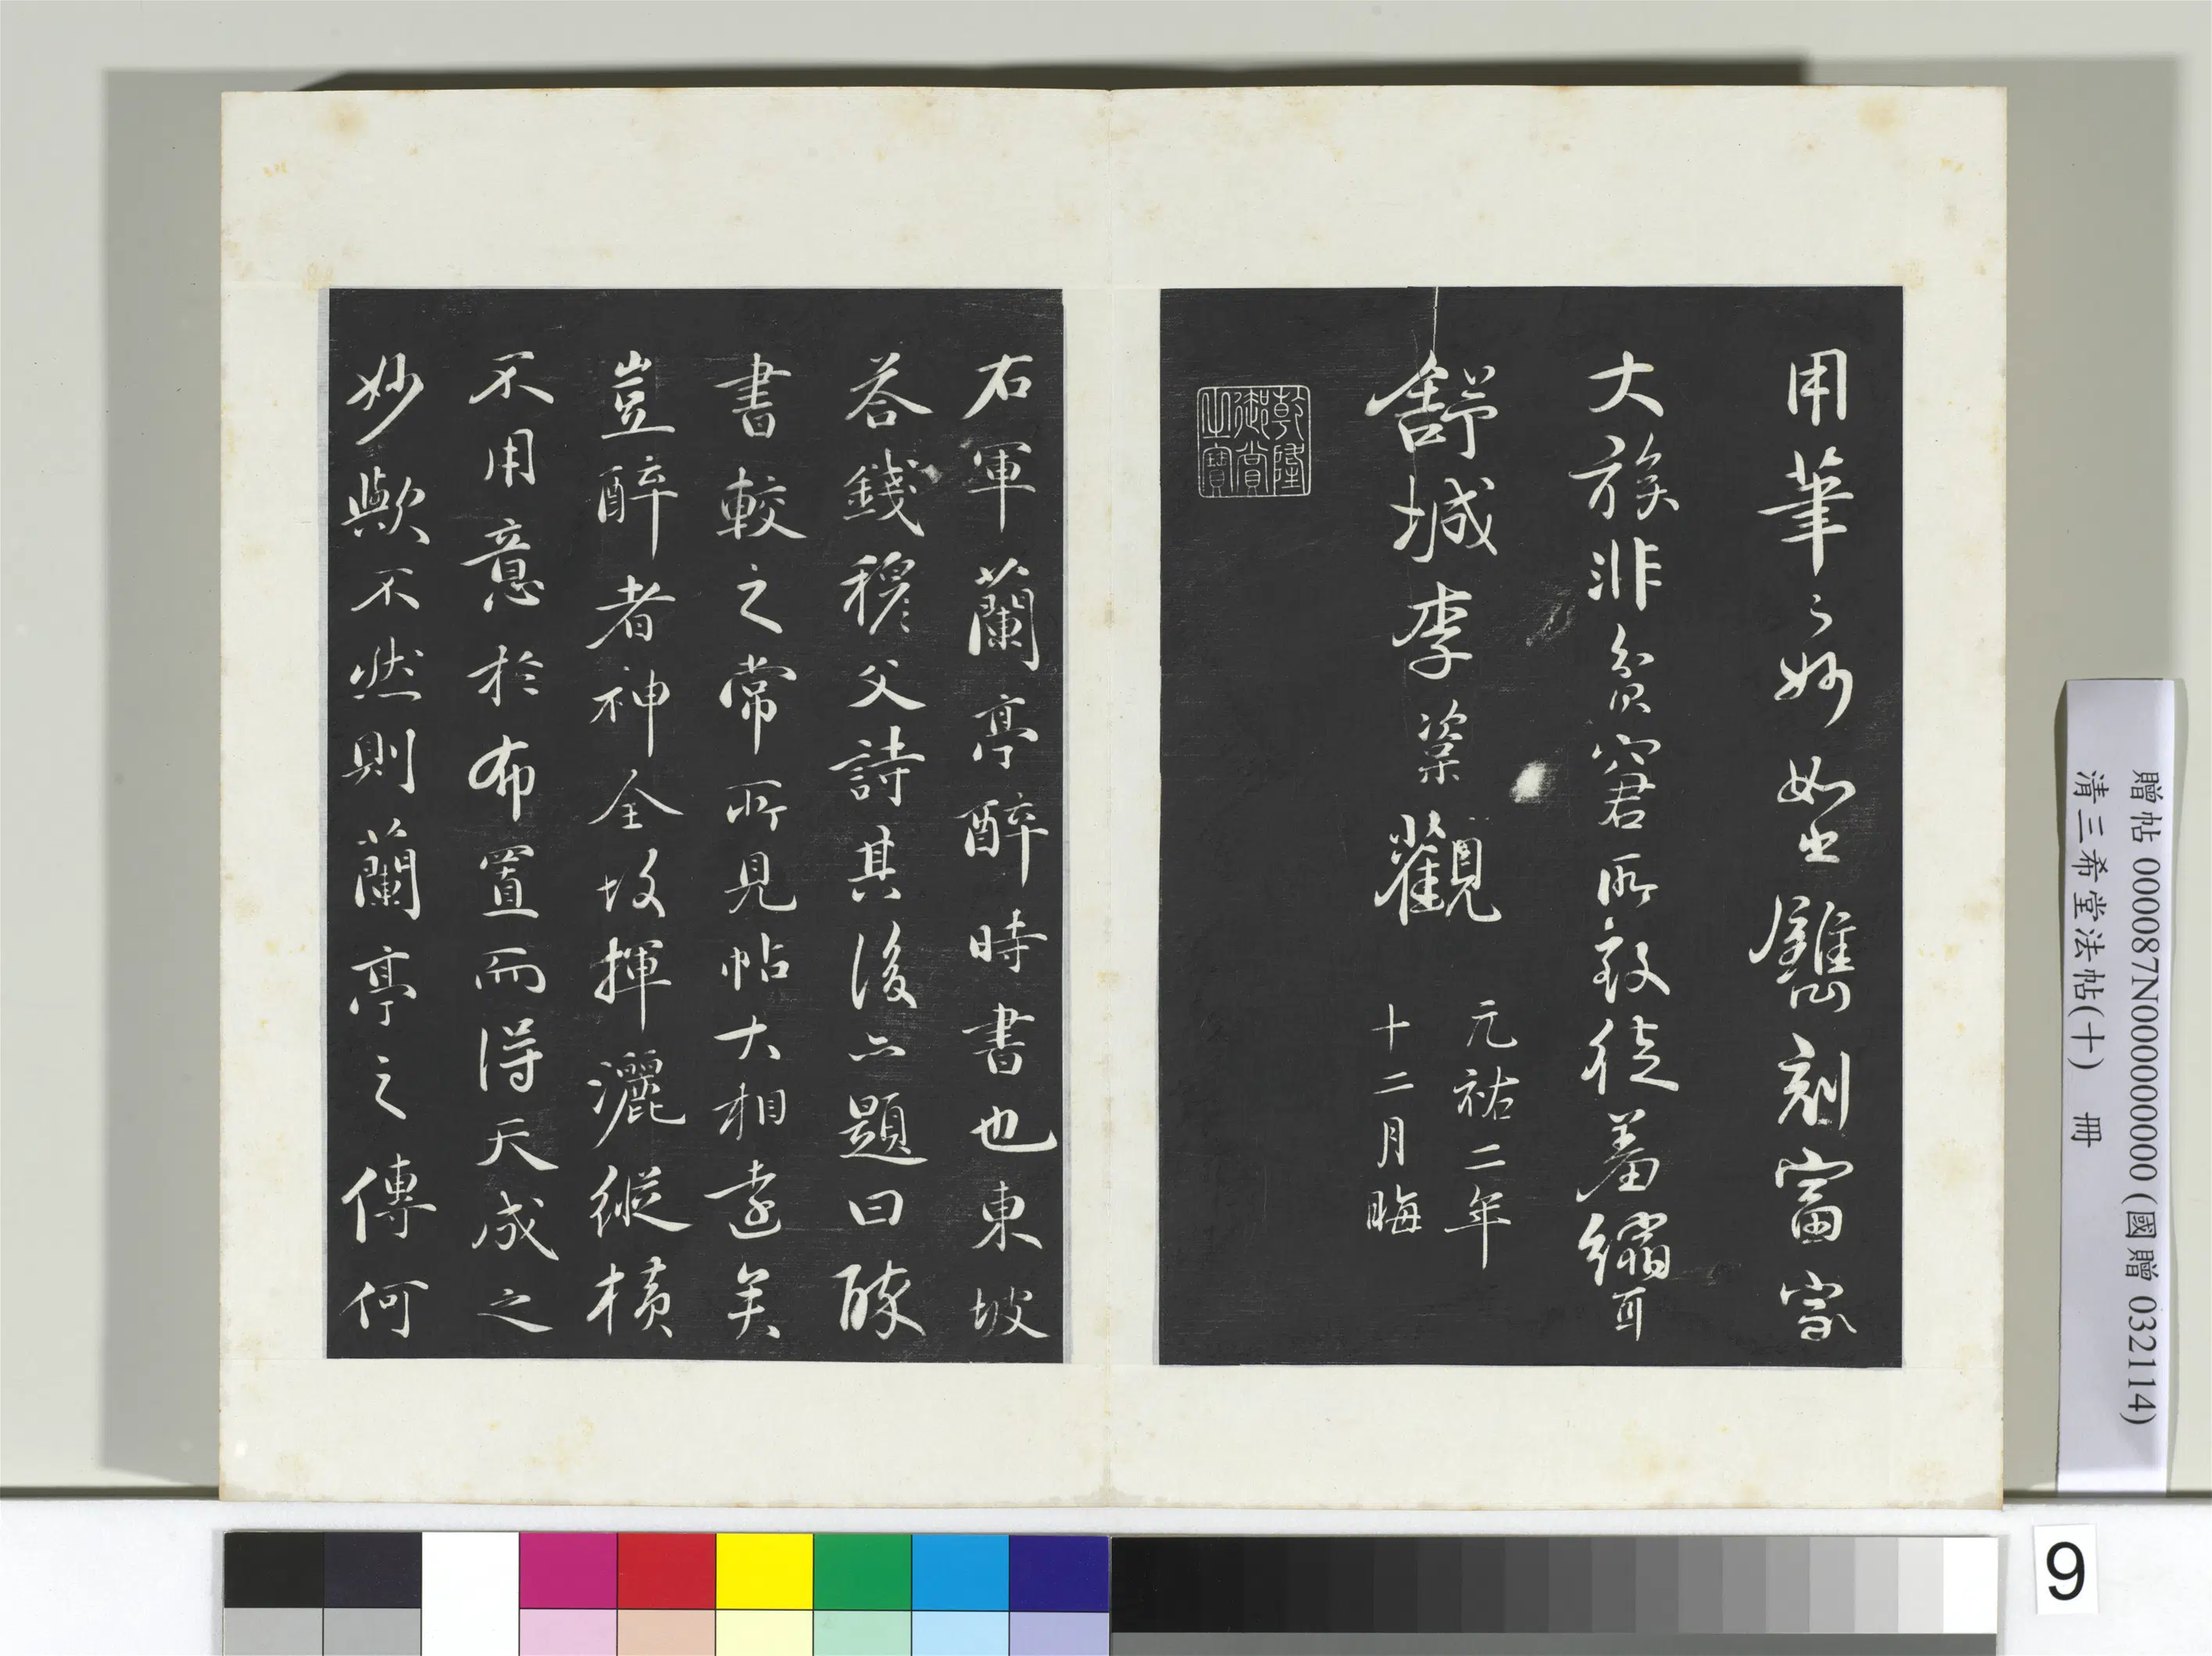 用筆之妙如此鐫刻富家
大族非貧窘所致徒羞縮耳
舒城李楶觀
元祐二年
十二月晦
乾隆
御賞
之寶
右軍蘭亭醉時書也東坡
答錢穆父詩其後亦題曰醉
書較之常所見帖大相遠矣
豈醉者神全故揮灑縱橫
不用意於布置而得天成之
妙歟不然則蘭亭之傳何
贈帖 000087N000000000 (國贈 032114)
清三希堂法帖(十) 冊
9